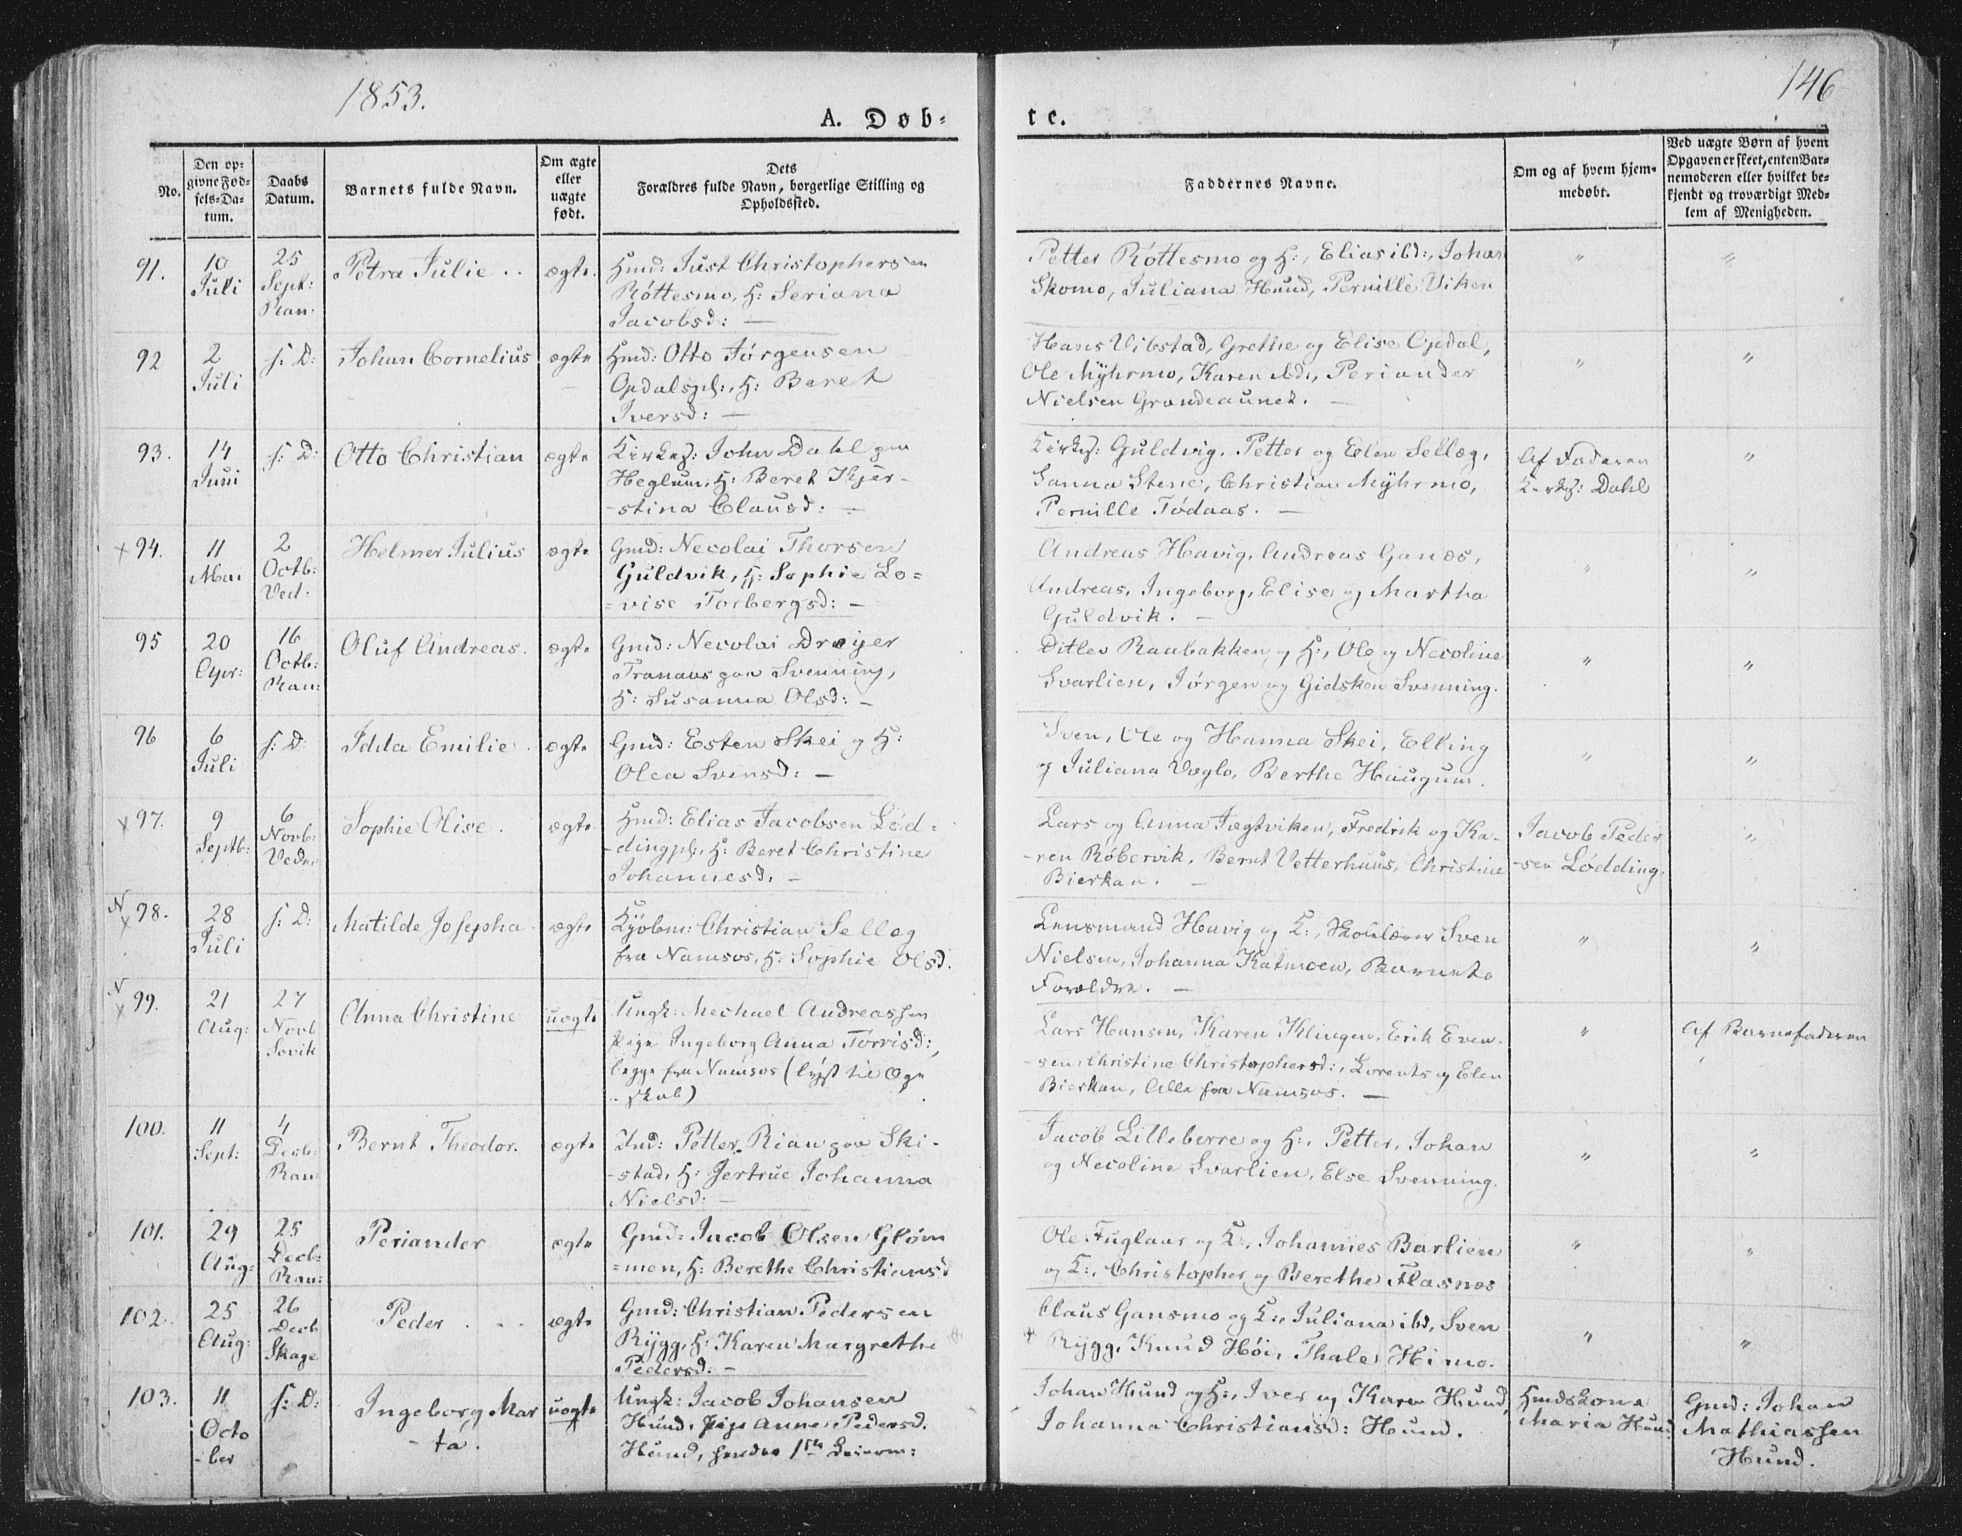 1853.
146
A. Døb-
te.
No.
Den op-
givne Fød-
sels-Da-
tum.
Daabs
Datum.
Barnets fulde Navn.
Om ægte
eller
uægte
født.
Dets
Forældres fulde Navn, borgerlige Stilling og
Opholdssted.
Faddernes Navne.
Om og af hvem hjem-
medøbt.
Ved uægte Børn af hvem
Opgaven er skeet, enten Bar-
nemoderen eller hvilket be-
kjendt og troværdigt Med-
lem af Menigheden.
91.
10
Juli
25
Sept:
Ran:
Petra Julie
ægte.
Hmd: Just Christophersen
Røttesmo, H: Seriana
Jacobsd: —
Petter Røttesmo og H:, Elias ibd:, Johan
Skomo, Juliana Hund, Pernille Viken
"
"
92
2
Juli
s: D:
Johan Cornelius
ægte
Hmd: Otto Jørgensen
Opdalspl:, H: Beret
Iversd: —
Hans Vibstad, Grethe og Elise Opdal,
Ole Mÿhrmo, Karen ibd:, Periander
Nielsen Grandeaunet. —
"
"
93.
14
Juni
s: D:
Otto Christian
ægte
Kirkes: John Dahl paa
Heglum, H: Beret Kjer-
-stina Clausd: —
Kirkes: Guldvig, Petter og Elen Sellæg,
Sanna Stene, Christian Mÿhrmo,
Pernille Tødaas. —
Af Faderen
Kirkes: Dahl
"
x 94.
11
Mai
2
Octb:
Ved.
Helmer Julius
ægte
Gmd: Necolai Thorsen
Guldvik, H: Sophie Lo=
=vise Torbergsd: —
Andreas Havig, Andreas Ganæs,
Andreas, Ingeborg, Elise og Martha
Guldvik. —
"
"
95
20
Apr:
16
Octb:
Ran:
Oluf Andreas.
ægte
Gmd: Necolai Dreÿer
Tranaas paa Svenning,
H: Susanna Olsd: —
Ditlev Raubakken og H:, Ole og Necoline
Svarlien, Jørgen og Gidsken Svenning.
"
"
96
6
Juli
s: D:
Idda Emilie
ægte
Gmd: Esten Skei og H:
Olea Svensd: —
Sven, Ole og Hanna Skei, Elling
og Juliana Veglo, Berthe Haugum.
"
"
x 97.
9
Septb:
6
Novb:
Vedn
Sophie Olise.
ægte
Hmd: Elias Jacobsen Lød-
-dingpl:, H: Beret Christine
Johannesd. —
Lars og Anna Jægtviken, Fredrik og Ka-
-ren Røbervik, Bernt Vetterhuus, Christine
Bierkan. —
Jacob Peder
-sen Lødding.
"
N
x 98.
28
Juli
s: D:
Matilde Josepha
ægte
Kjøbm: Christian Sellæg
fra Namsos, H: Sophie Olsd.
Lensmand Havig og K:, Skolelærer Sven
Nielsen, Johanna Katmoen, Barnets
Forældre. —
"
"
N
x 99.
21
Aug:
27
Novb
Sævik
Anna Christine
uægte
Ungk: Mechael Andreassen
Pige Ingeborg Anna Torrisd:,
begge fra Namsos (lyst til Ægte
skab)
Lars Hansen, Karen Klingen, Erik Even-
sen, Christine Christophersd:, Lorents og Elen
Bierkan, Alle fra Namsos. —
"
Af Barnefaderen
100.
11
Sept:
4
Decb:
Ran:
Bernt Theodor.
ægte
Ind: Petter Rian paa Ski-
-stad, H: Jertrue Johanna
Nielsd: —
Jacob Lilleberre og H:, Petter, Johan
og Necoline Svarlien, Else Svenning.
"
"
101.
29
Aug:
25
Decb:
Ran:
Periander
ægte
Gmd: Jacob Olsen Gløm
=men, H: Berethe Christiansd
Ole Fuglaar og K:, Johannes Barlien
og K:, Christopher og Berethe Flasnæs
"
"
102.
25
Aug:
26
Decb
Skage
Peder
ægte
Gmd: Christian Pedersen
Rÿgg, H: Karen Margrethe
Pedersd: —
Claus Gansmo og K:, Juliana ibd, Sven
Rÿgg, Knud Høi, Thale Himo.
"
"
103.
11
Octo
-ber
s: D:
Ingeborg Mar
-ta.
uægte
Ungk: Jacob Johansen
Hund, Pige Anne Pedersd.
Hund, hendes 1ste Leierm:
Johan Hund og H:, Iver og Karen Hund,
Johanna Christiansd: Hund.
Hmdskone
Maria Hund
Gmd: Johan
Mathiassen
Hund.